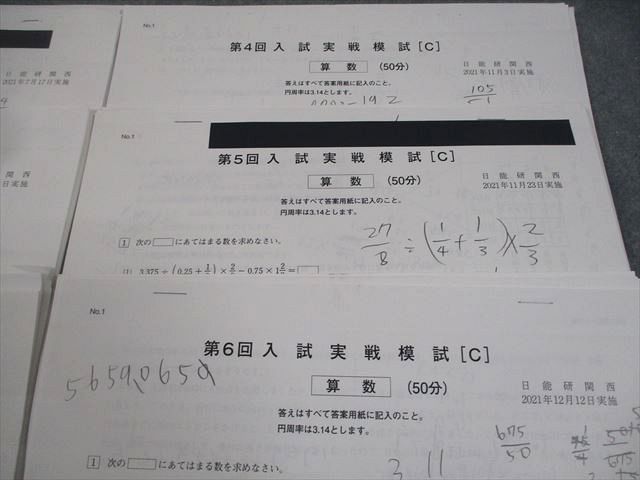 日能研関西
2021年7月17日実施
No.1
第4回入試実戦模試[C]
算数 (50分)
日能研関西
2021年11月3日実施
答えはすべて答案用紙に記入のこと。
円周率は3.14とします。
105
関西
日実施
No.1
第5回入試実戦模試[C]
算数 (50分)
日能研関西
2021年11月23日実施
答えはすべて答案用紙に記入のこと。
円周率は3.14とします。
27/8 ÷ (1/4 + 1/3) × 2/3
1 次の□にあてはまる数を求めなさい。
(1) 3.375 ÷ (0.25 +
No.1
第6回入試実戦模試[C]
算数 (50分)
日能研関西
2021年12月12日実施
答えはすべて答案用紙に記入のこと。
円周率は3.14とします。
675/50
1 次の□にあてはまる数を求めなさい。
3 11